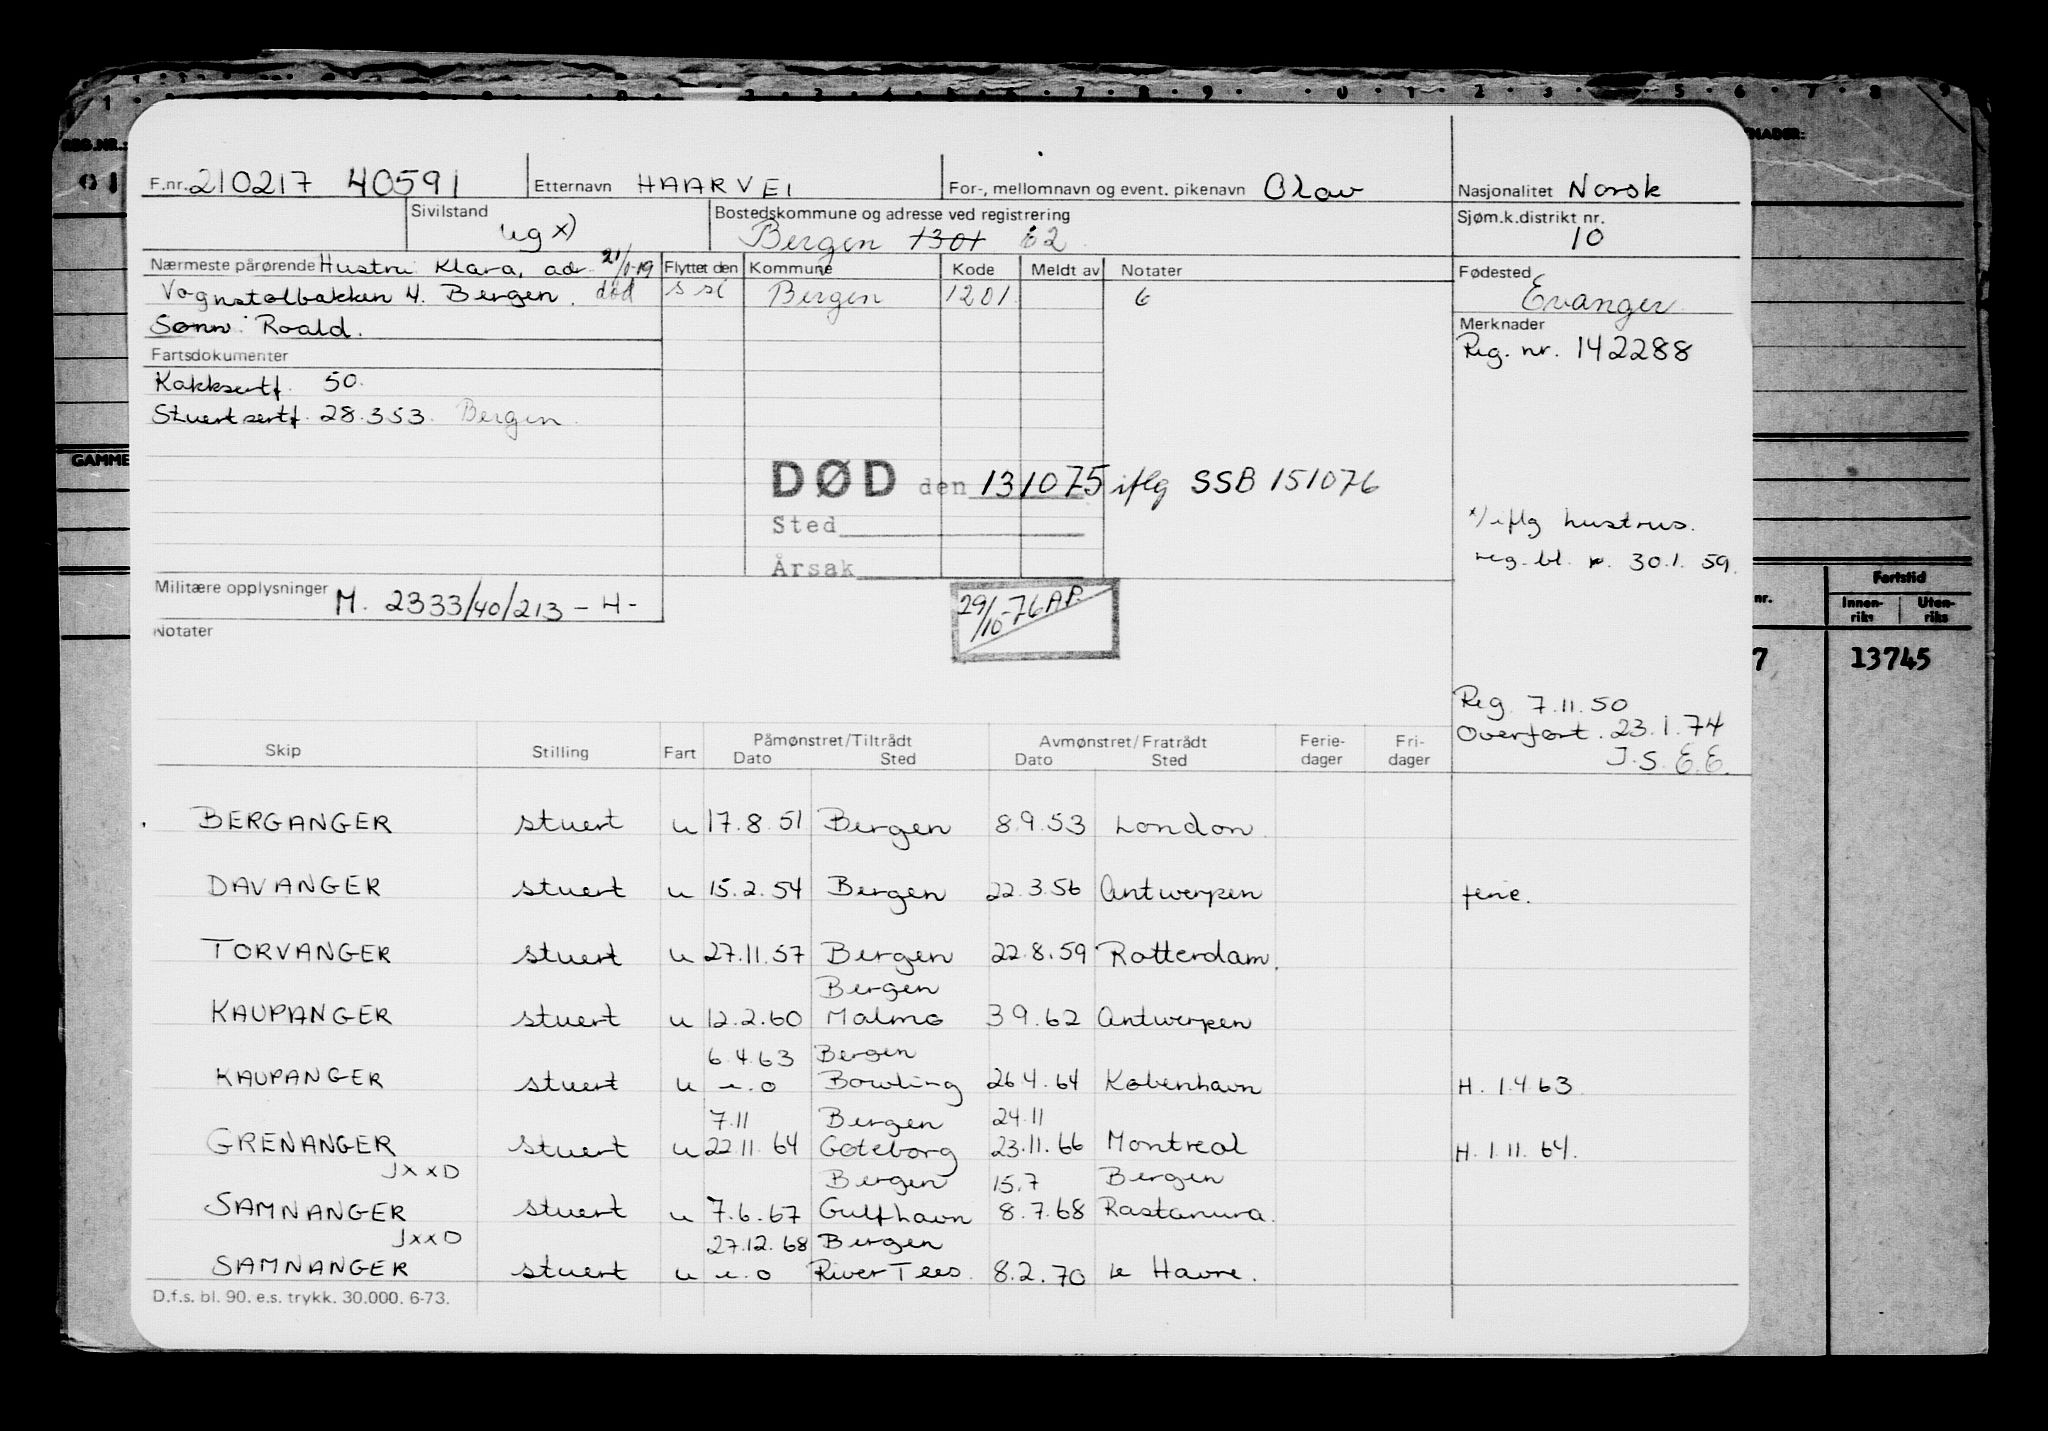 F.nr. 210217 40591 Etternavn HAARVEI For-, mellomnavn og event. pikenavn Olav Nasjonalitet Norsk
Sivilstand ug x) Bostedskommune og adresse ved registrering Bergen 1301 Sjøm.k.distrikt nr. 10
Nærmeste pårørende Hustru Klara, adr. Flyttet den Kommune Kode Meldt av Notater Fødested
Vognstølbakken 4. Bergen. død Bergen 1201 6 Evanger
Sønn: Roald. Merknader
Reg. nr. 142288
Fartsdokumenter
Kokksertf. 50.
Stuertsertf. 28.3.53. Bergen
DØD den 131075 iflg SSB 151076
Sted
Årsak
x) iflg hustrus.
reg. bl. 30.1.59.
Militære opplysninger M. 2333/40/213 - H -
29/10-76 AP.
Notater
Reg. 7.11.50
Overført. 23.1.74
J.S. E.E.
Skip Stilling Fart Påmønstret/Tiltrådt Avmønstret/Fratrådt Ferie- Fri-
Dato Sted Dato Sted dager dager
BERGANGER stuert u 17.8.51 Bergen 8.9.53 London.
DAVANGER stuert u 15.2.54 Bergen 22.3.56 Antwerpen ferie.
TORVANGER stuert u 27.11.57 Bergen 22.8.59 Rotterdam.
Bergen
KAUPANGER stuert u 12.2.60 Malmø 3.9.62 Antwerpen
6.4.63 Bergen
KAUPANGER stuert u u.o Bowling 26.4.64 København H. 1.4.63.
7.11 Bergen 24.11
GRENANGER stuert u 22.11.64 Goteborg 23.11.66 Montreal H. 1.11.64.
JxxD Bergen 15.7 Bergen
SAMNANGER stuert u 7.6.67 Gulfhavn 8.7.68 Rastanura.
JxxD 27.12.68 Bergen
SAMNANGER stuert u u.o River Tees. 8.2.70 le Havre.
D.f.s. bl. 90. e.s. trykk. 30.000. 6-73.
REG.NR.:
GAMME
Fartstid
nr. Innen-riks Uten-riks
7 13745